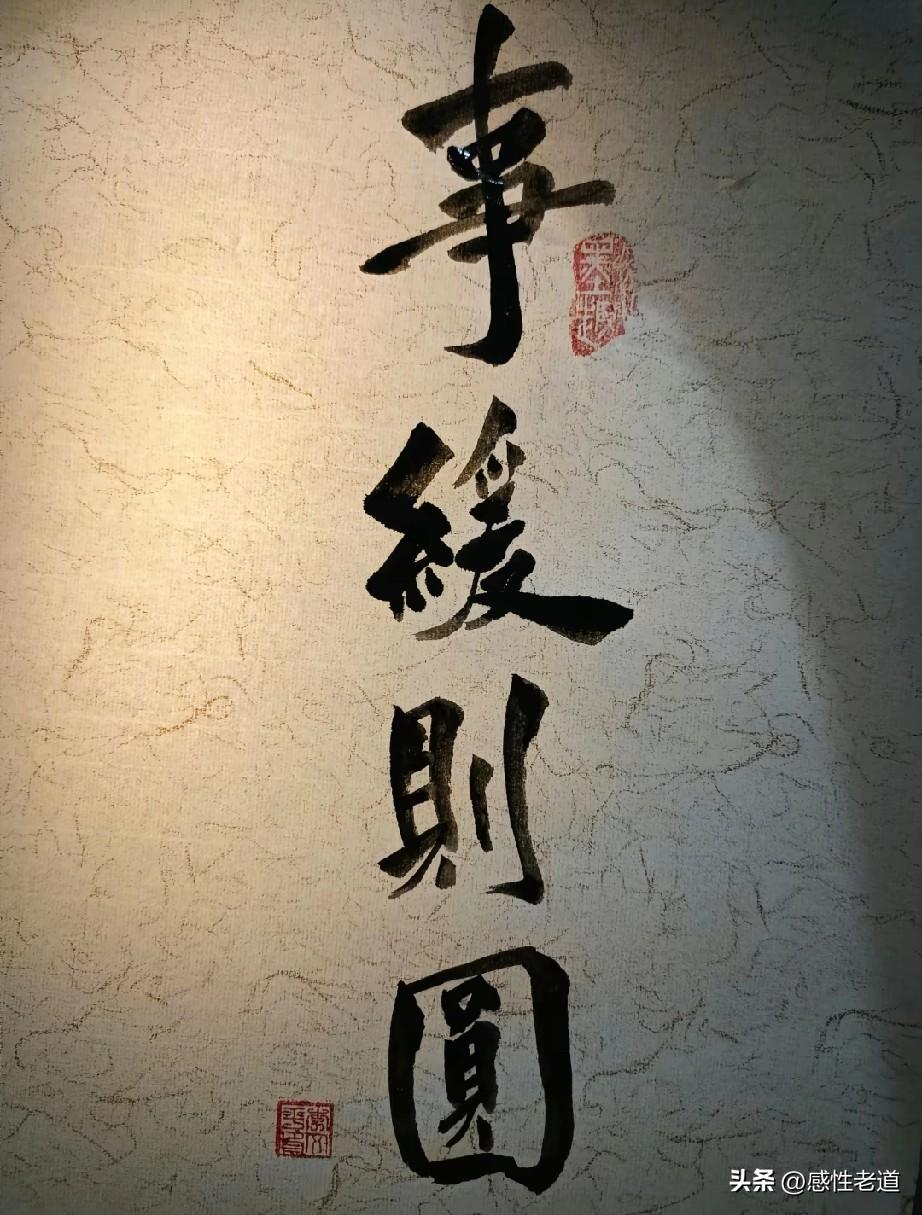 事緩則圓
墨趣
头条 @感性老道